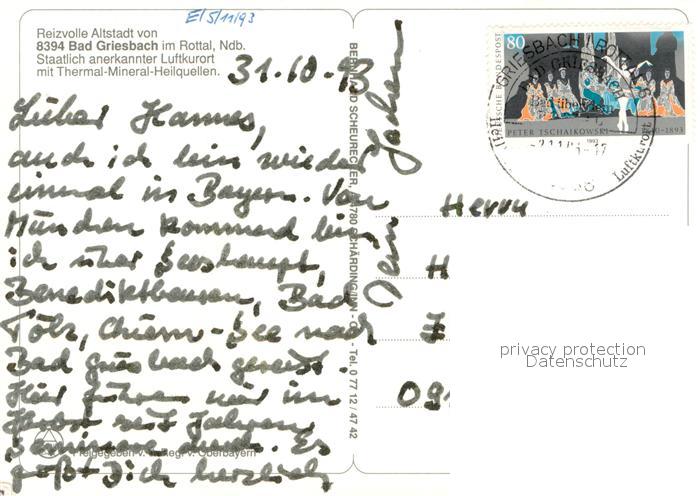 E/5/11/93
Reizvolle Altstadt von
8394 Bad Griesbach im Rottal, Ndb.
Staatlich anerkannter Luftkurort
mit Thermal-Mineral-Heilquellen.
31.10.93
Lieber Hannes,
auch ich bin wieder
einmal in Bayern. Von
München kommend bin
ich über Seeshaupt,
Bad
Tölz, Chiem-See nach
Bad Griesbach gereist.
Hier führen wir im
Herbst seit Jahren
Seminare durch. Es
grüßt Dich herzlich
Dein Jochen
Freigegeben v. Reg. v. Oberbayern
BERNHARD SCHEURECKER, 4780 SCHÄRDING/INN - Tel. 0 77 12 / 47 42
80
DEUTSCHE BUNDESPOST
PETER TSCHAIKOWSKI
-1893
1993
GRIESBACH I ROTTAL
BAD GRIESBACH
Luftkurort
Herrn
H
091
privacy protection
Datenschutz